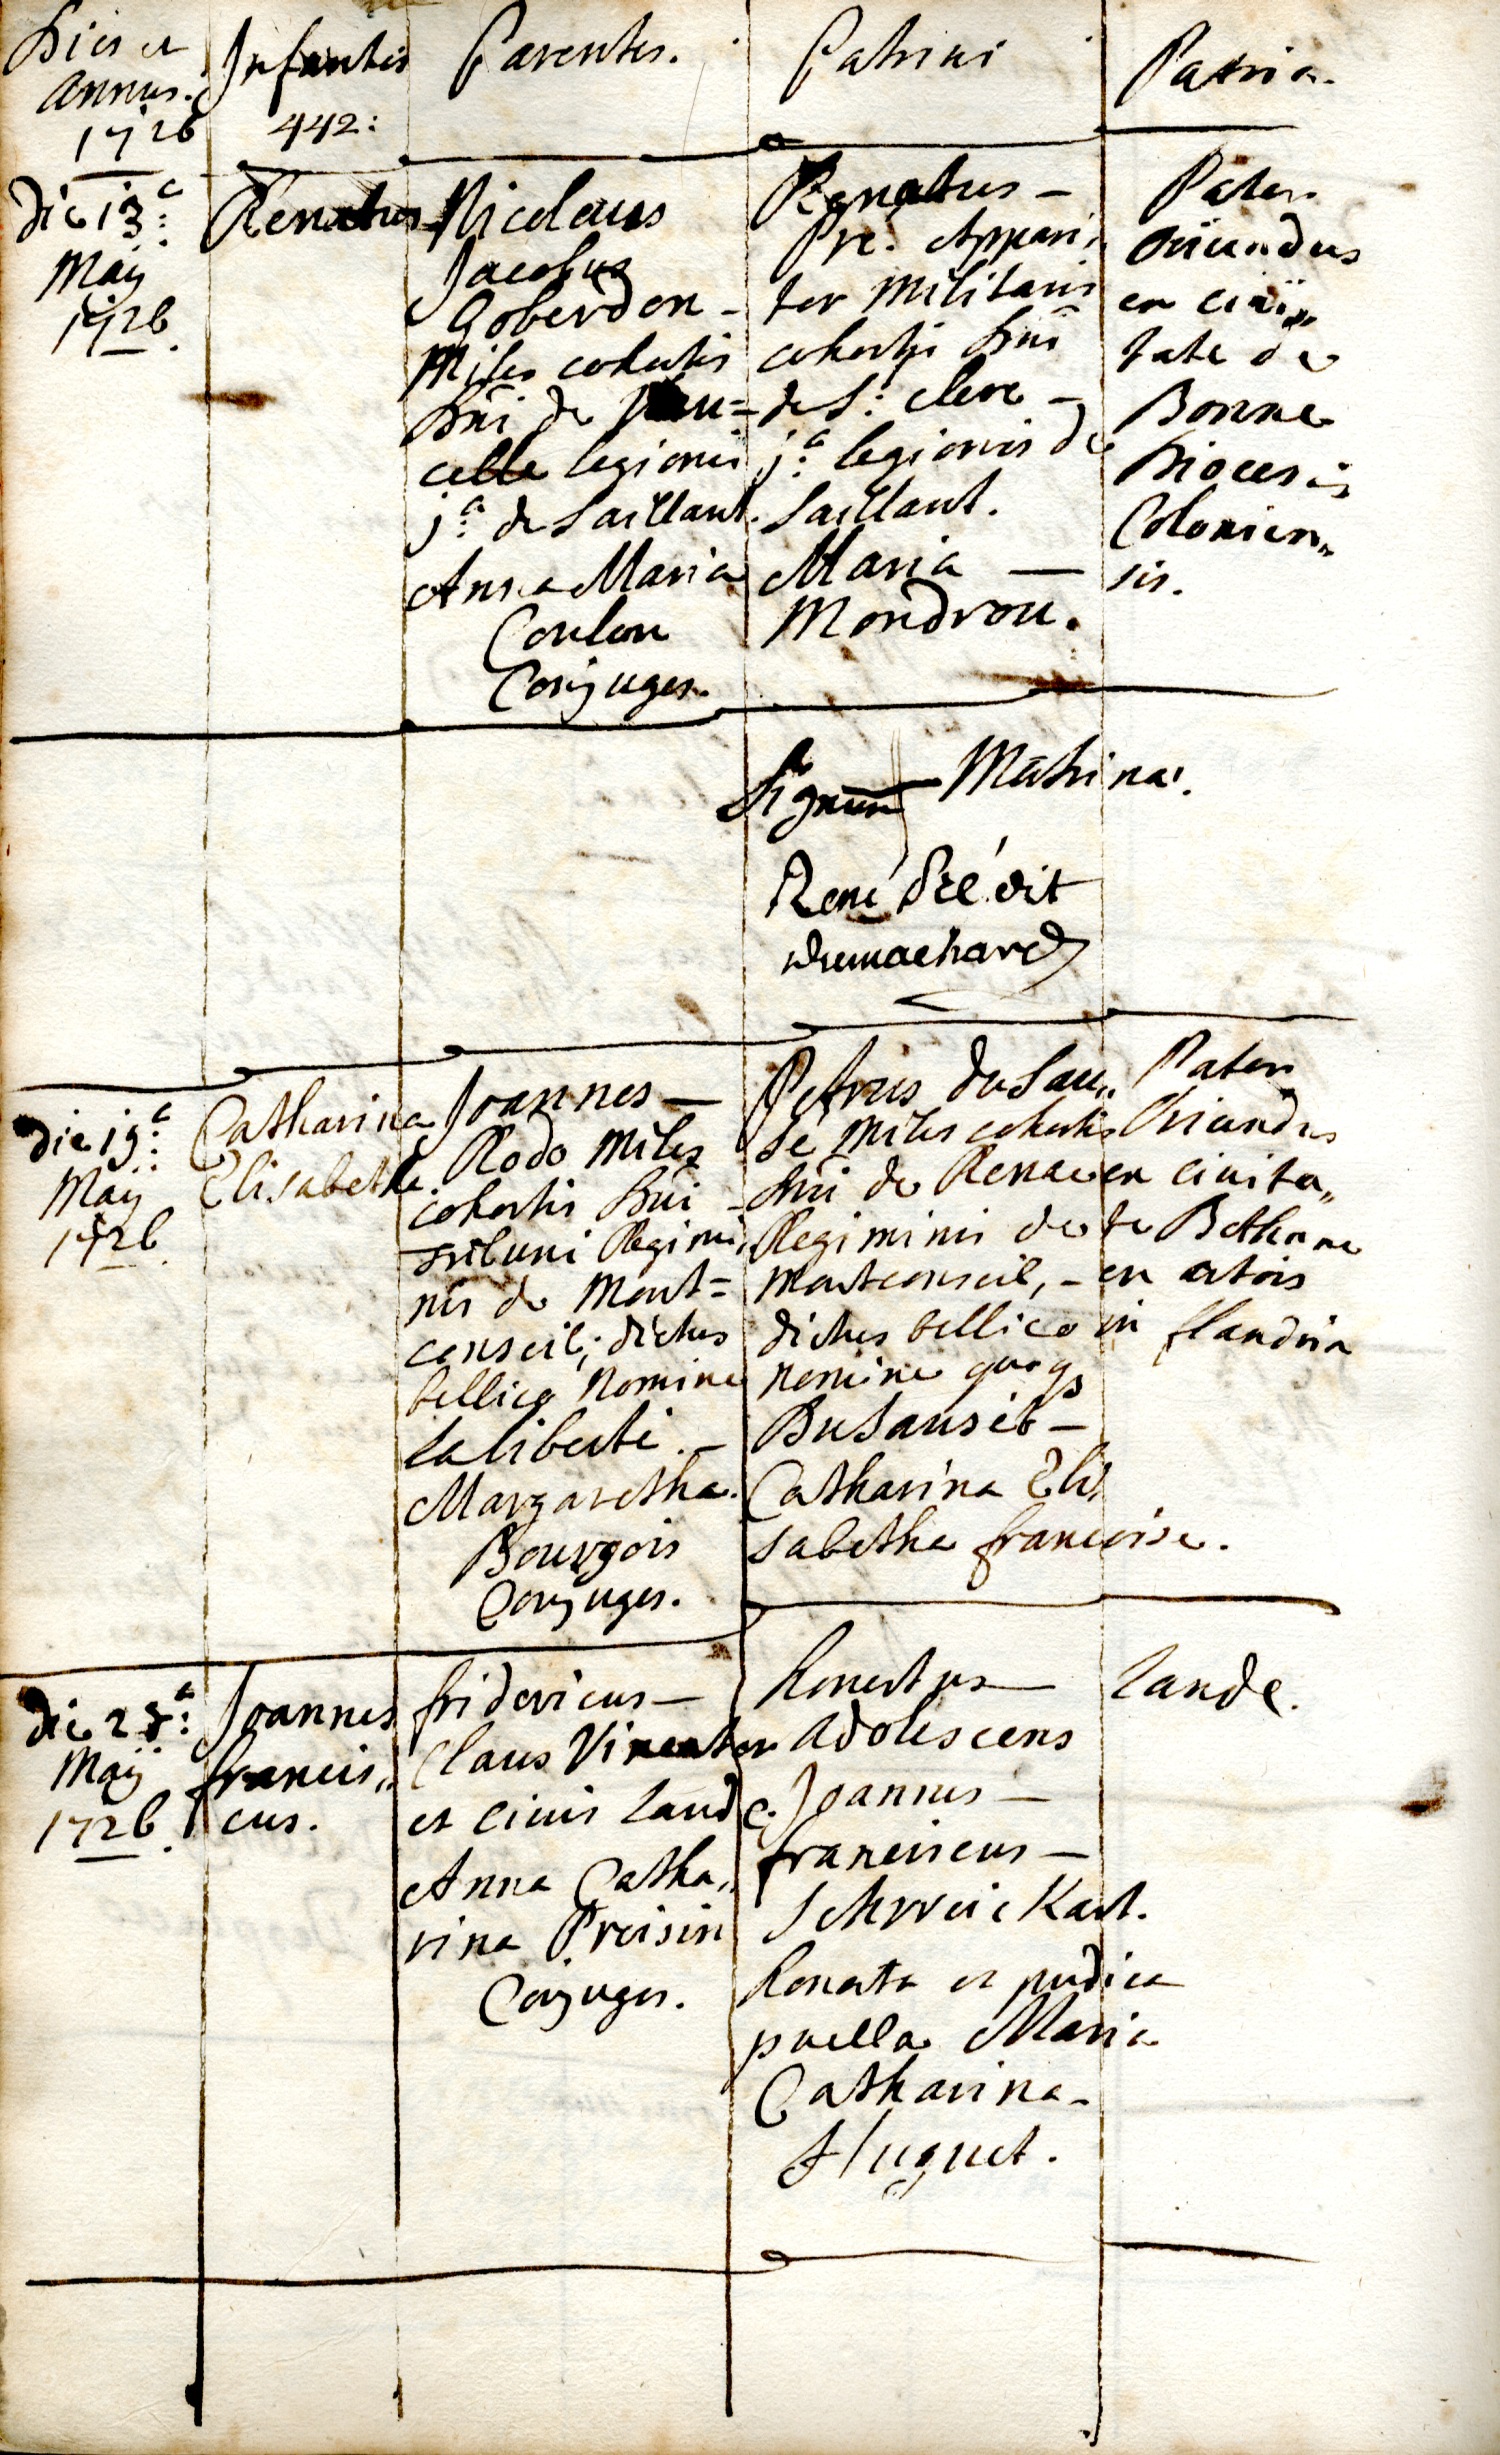 Dies et
annus.
1726
Infantes
442:
Parentes.
Patrini
Patria.
die 13a:
Maÿ
1726.
Renatus
Nicolaus
Jacobus
Goberdon -
Miles cohortis
Dni de
celle legionis
j.a de Saillant.
Anna Maria
Coulon
Conjuges.
Renatus -
Pre. Appari
tor militaris
cohortis Dni
de St: clere -
j.a legionis de
Saillant.
Maria —
Mondrou.
Pater
oriundus
ex civi„
tate de
Bonne
Diocesis
Colonien„
sis.
Signum Matrinae.
René Pré dit
dumachard
die 19a:
Maÿ
1726.
Catharina
Elisabetha
Joannes —
Rodo Miles
cohortis Dni -
Tribuni Regimi„
nis de Mont=
conseil; dictus
bellico Nomine
laliberté. -
Margaretha.
Bourgois
Conjuges.
Petrus duSau„
sé Miles cohortis
Dni de Renac
Regiminis de
Montconseil, -
dictus bellico
nomine quoqz
DuSausét -
Catharina Eli
sabetha francoise.
Pater
Oriundus
ex civita„
te Bethune
en Artois
in flandria
die 28a:
Maÿ
1726.
Joannes
francis„
cus.
fridericus —
Claus Vineator
et civis Laudae.
Anna Catha„
rina Preisin
Conjuges.
honestus —
Adolescens
Joannes —
franciscus —
Schweickart.
honesta et pudica
puella Maria
Catharina -
Huguet.
Landae.